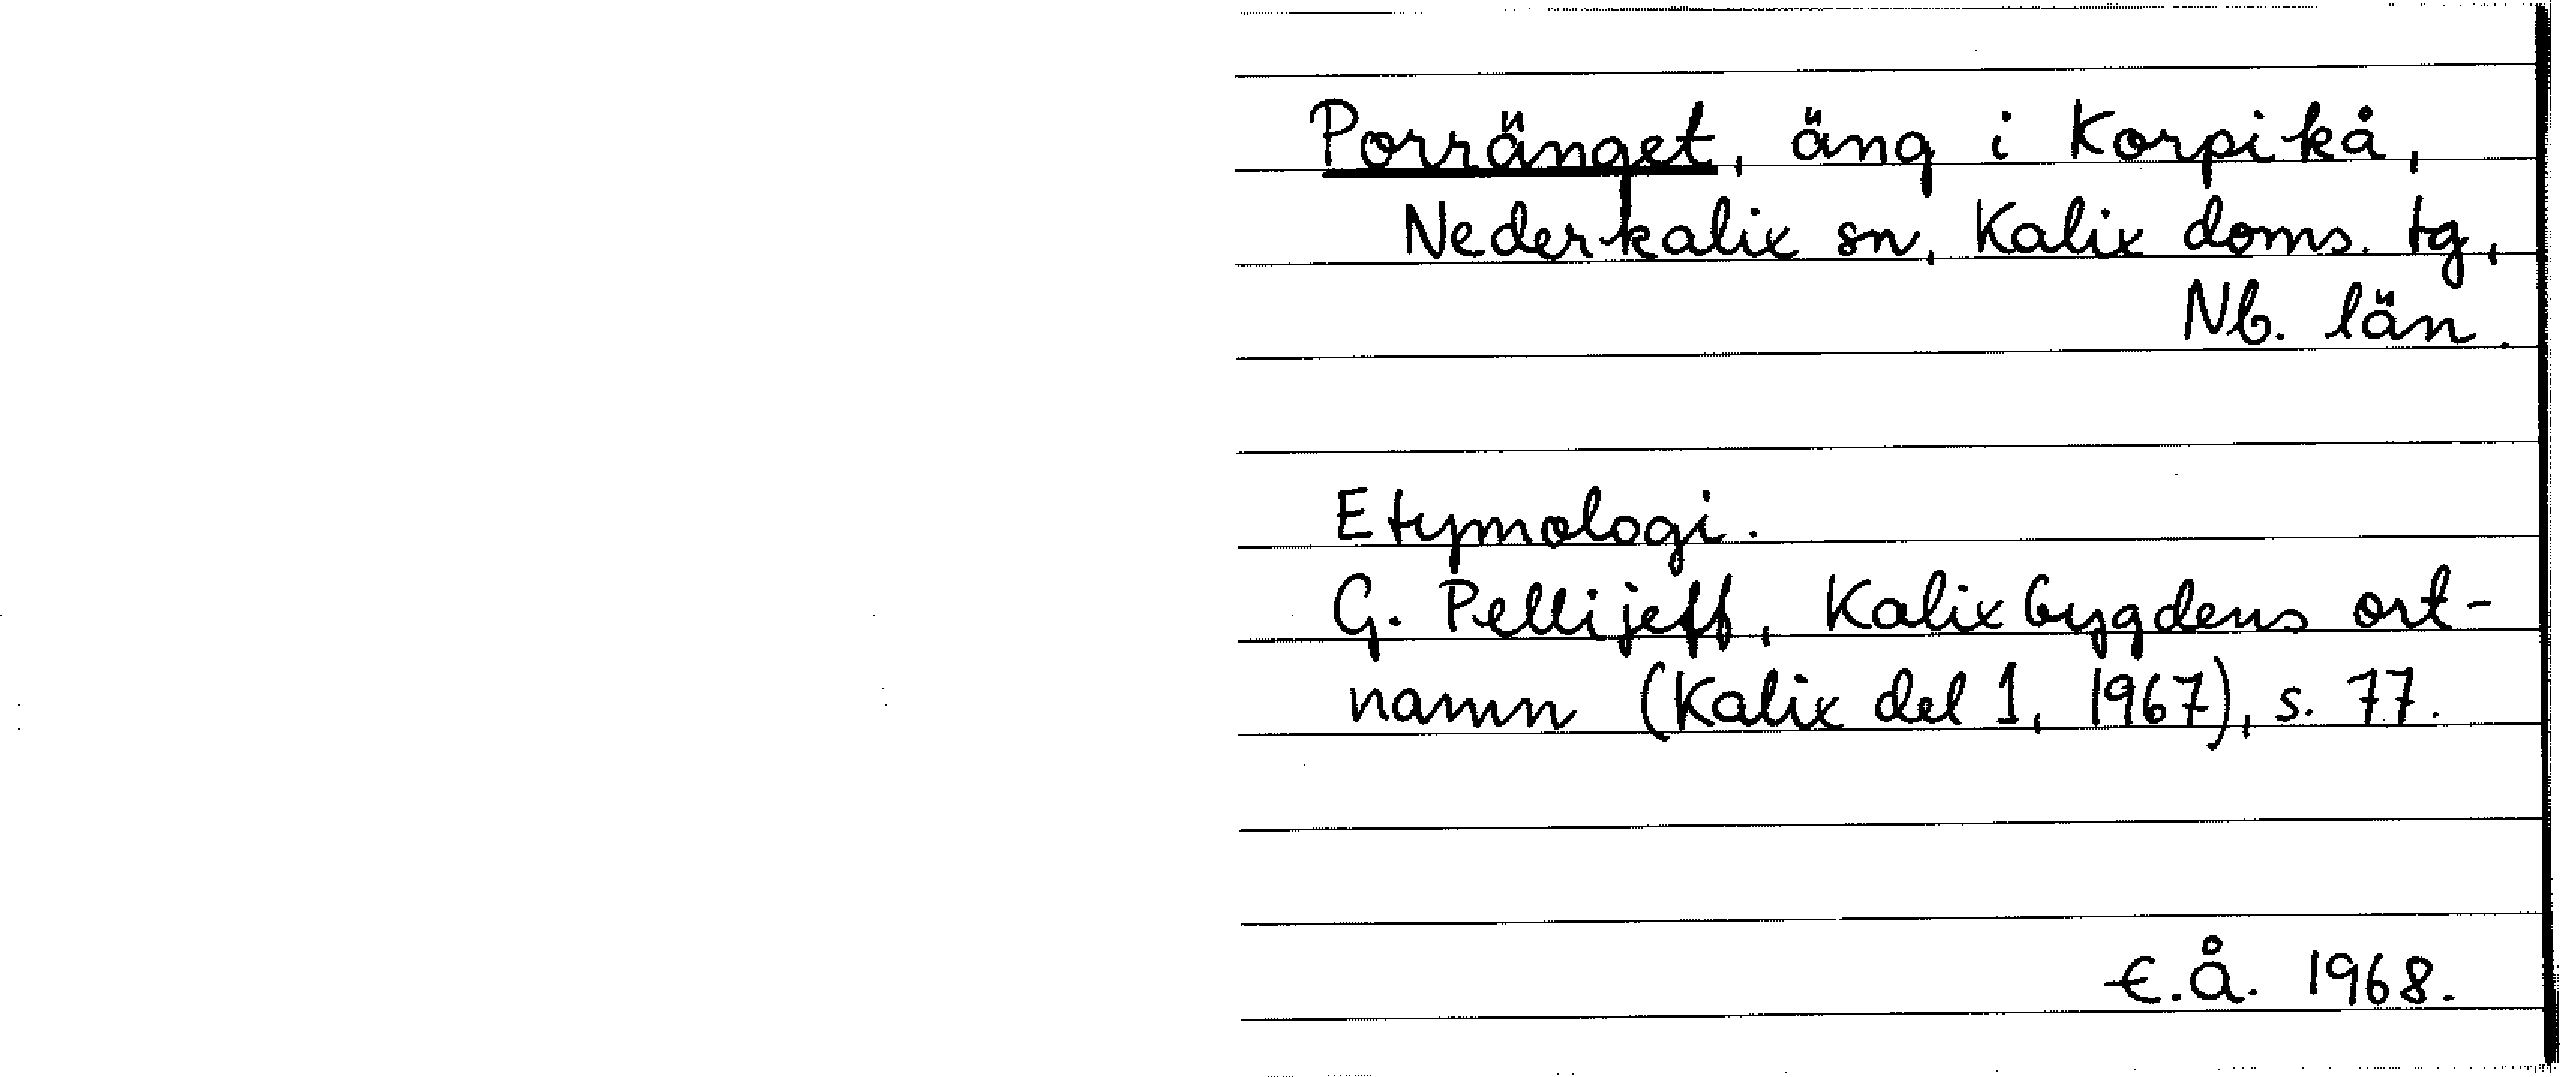 Porränget, äng i Korpikå,
Nederkalix sn, Kalix doms. tg,
Nb. län.
Etymologi.
G. Pellijeff, Kalixbygdens ort-
namn (Kalix del 1, 1967), s. 77.
E.Å. 1968.